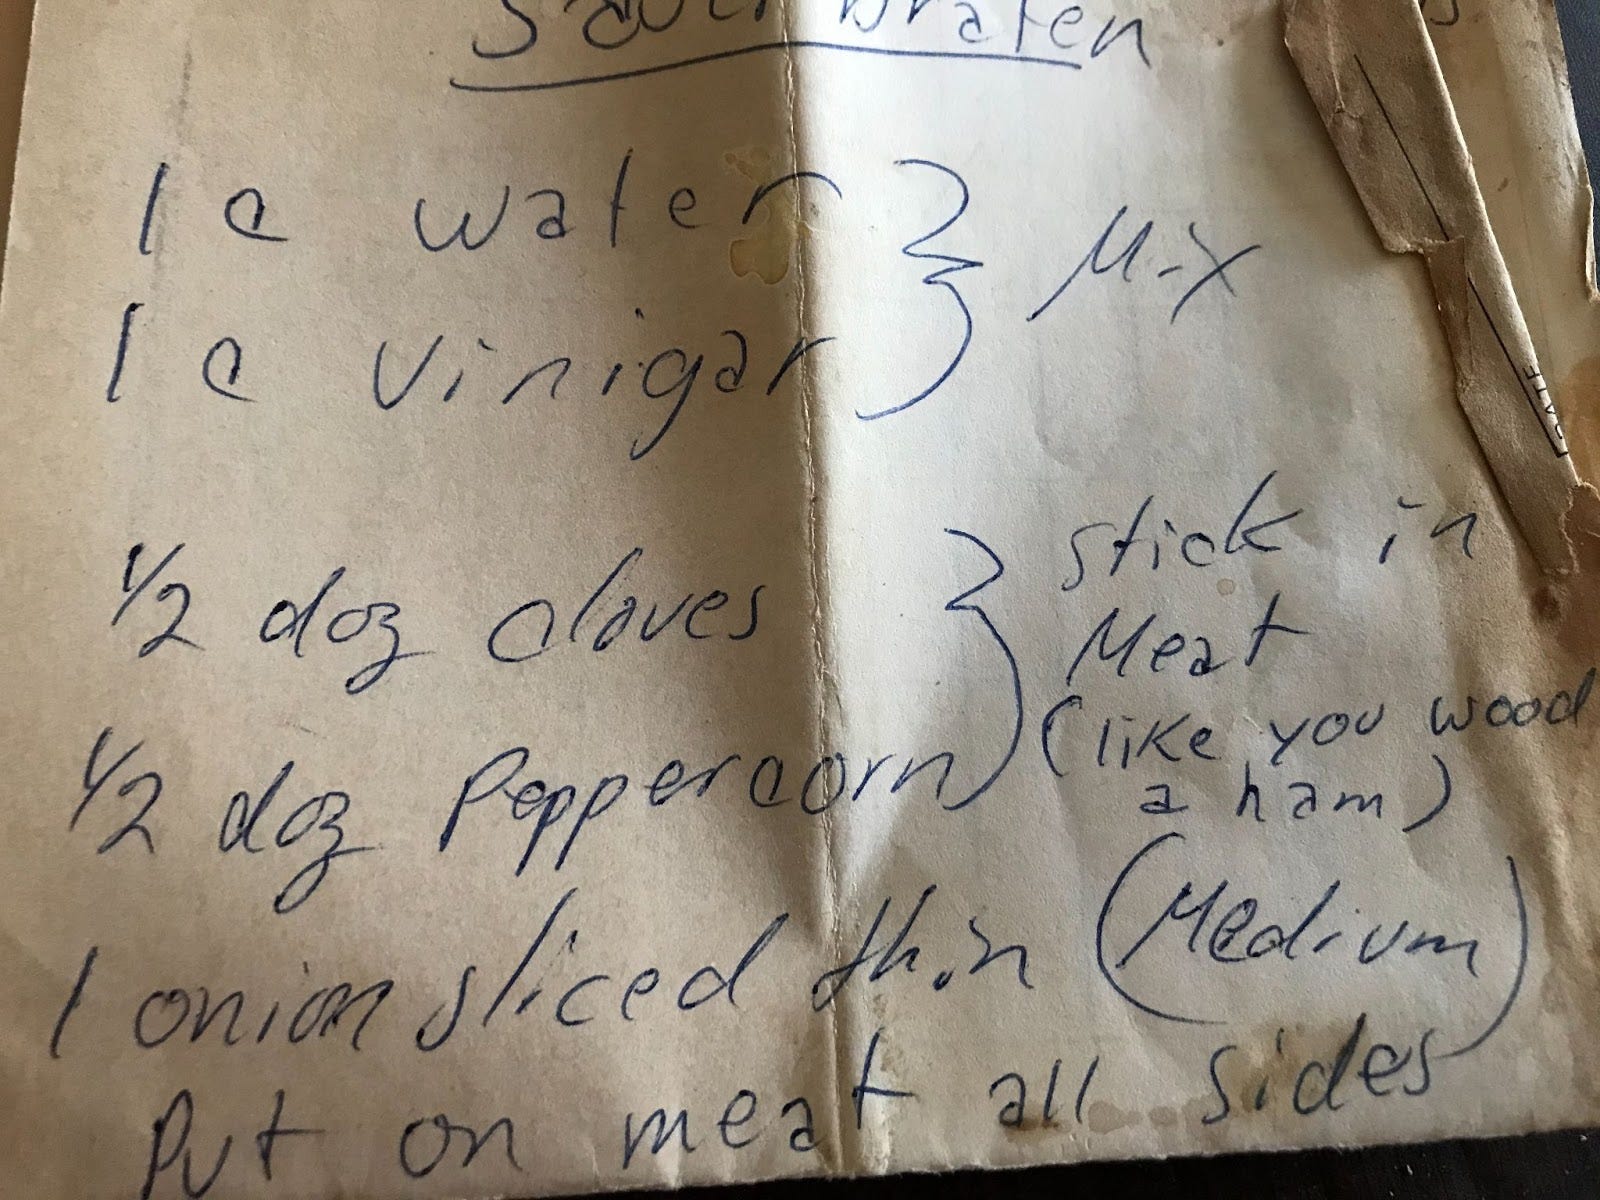 Sauerbraten
1 c water } Mix
1 c vinigar
1/2 doz cloves } stick in
Meat
(like you wood
a ham)
1/2 doz Peppercorn
1 onion sliced thin (Medium)
Put on meat all sides
DATE